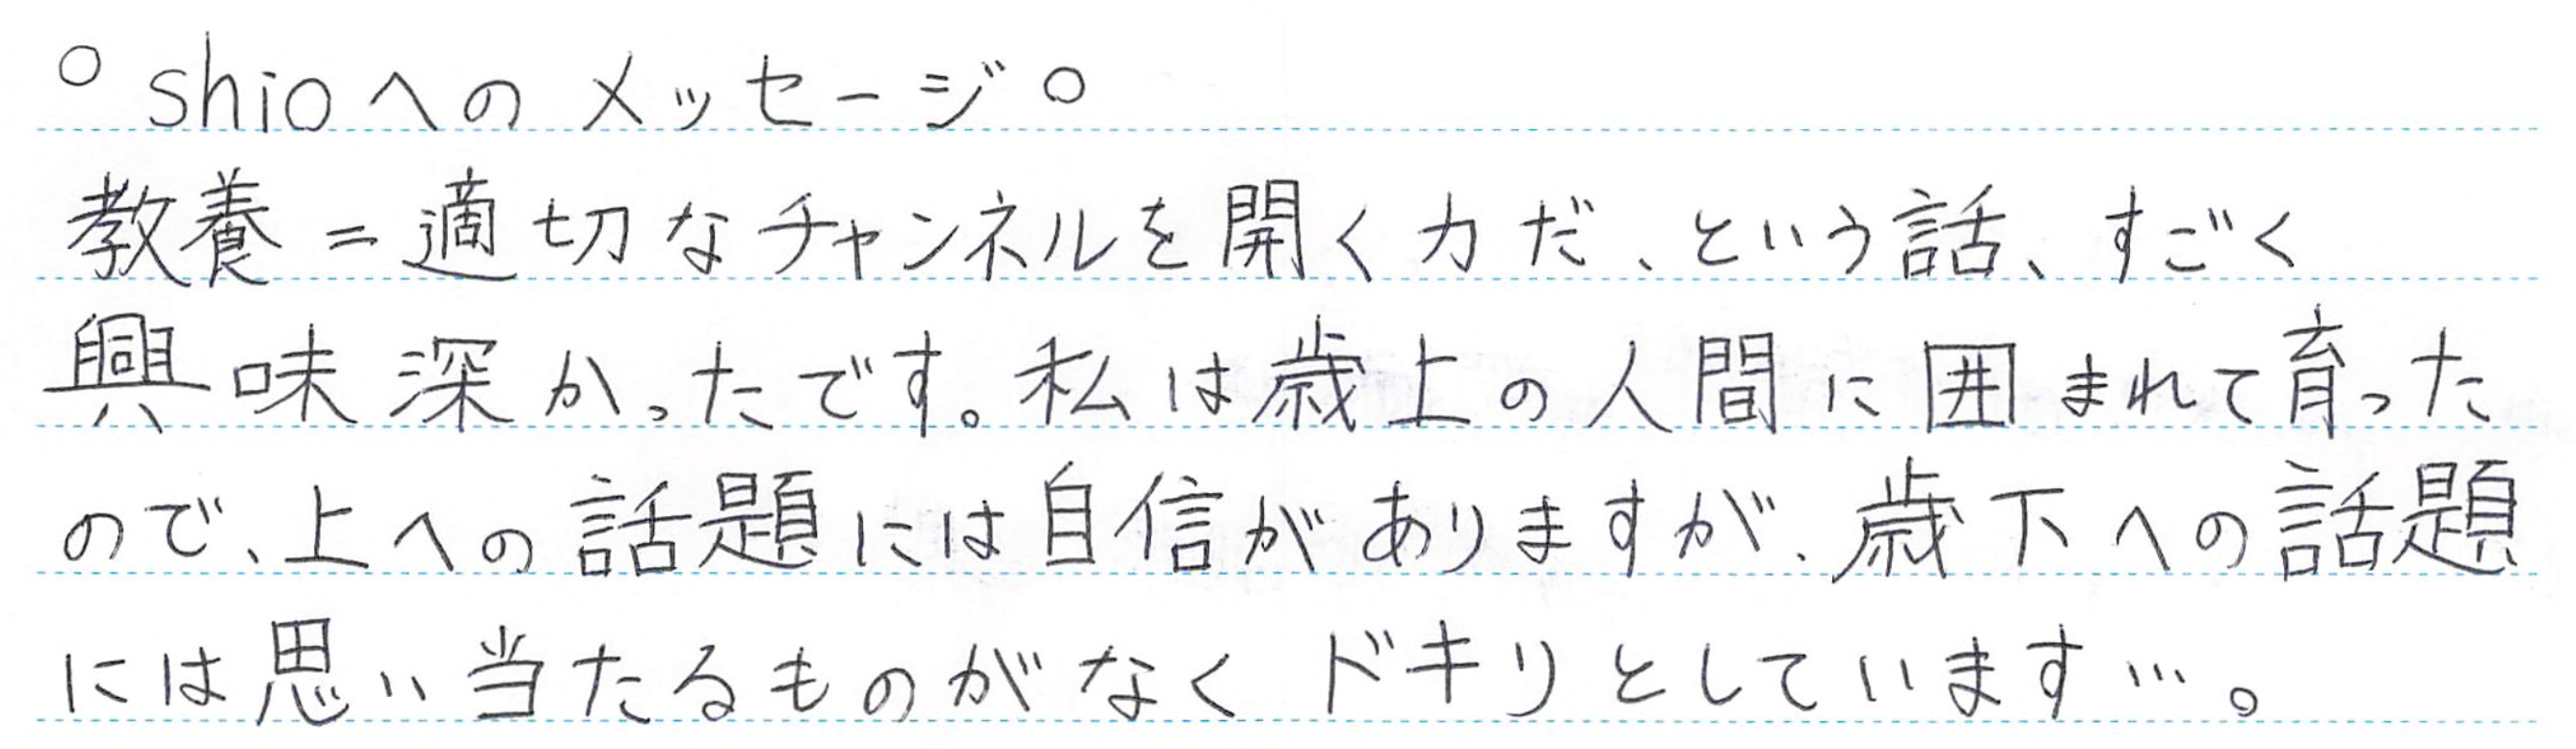 ○ shioへのメッセージ○
教養=適切なチャンネルを開く力だ、という話、すごく
興味深かったです。私は歳上の人間に囲まれて育った
ので、上への話題には自信がありますが、歳下への話題
には思い当たるものがなくドキリとしています…。